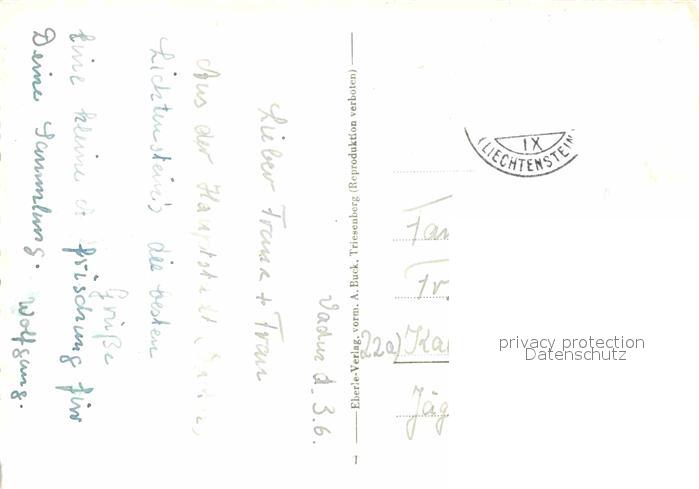 Vaduz d. 3.6.
Lieber Franz + Frau
Aus der Hauptstadt
Lichtenstein's die besten
Grüße
Eine kleine
frischung für
Deine Sammlung. Wolfgang.
Eberle-Verlag, vorm. A. Buck, Triesenberg (Reproduktion verboten)
1
IX
(LIECHTENSTEIN
Fam
Fr
(22a) Ka
Jäg
privacy protection
Datenschutz